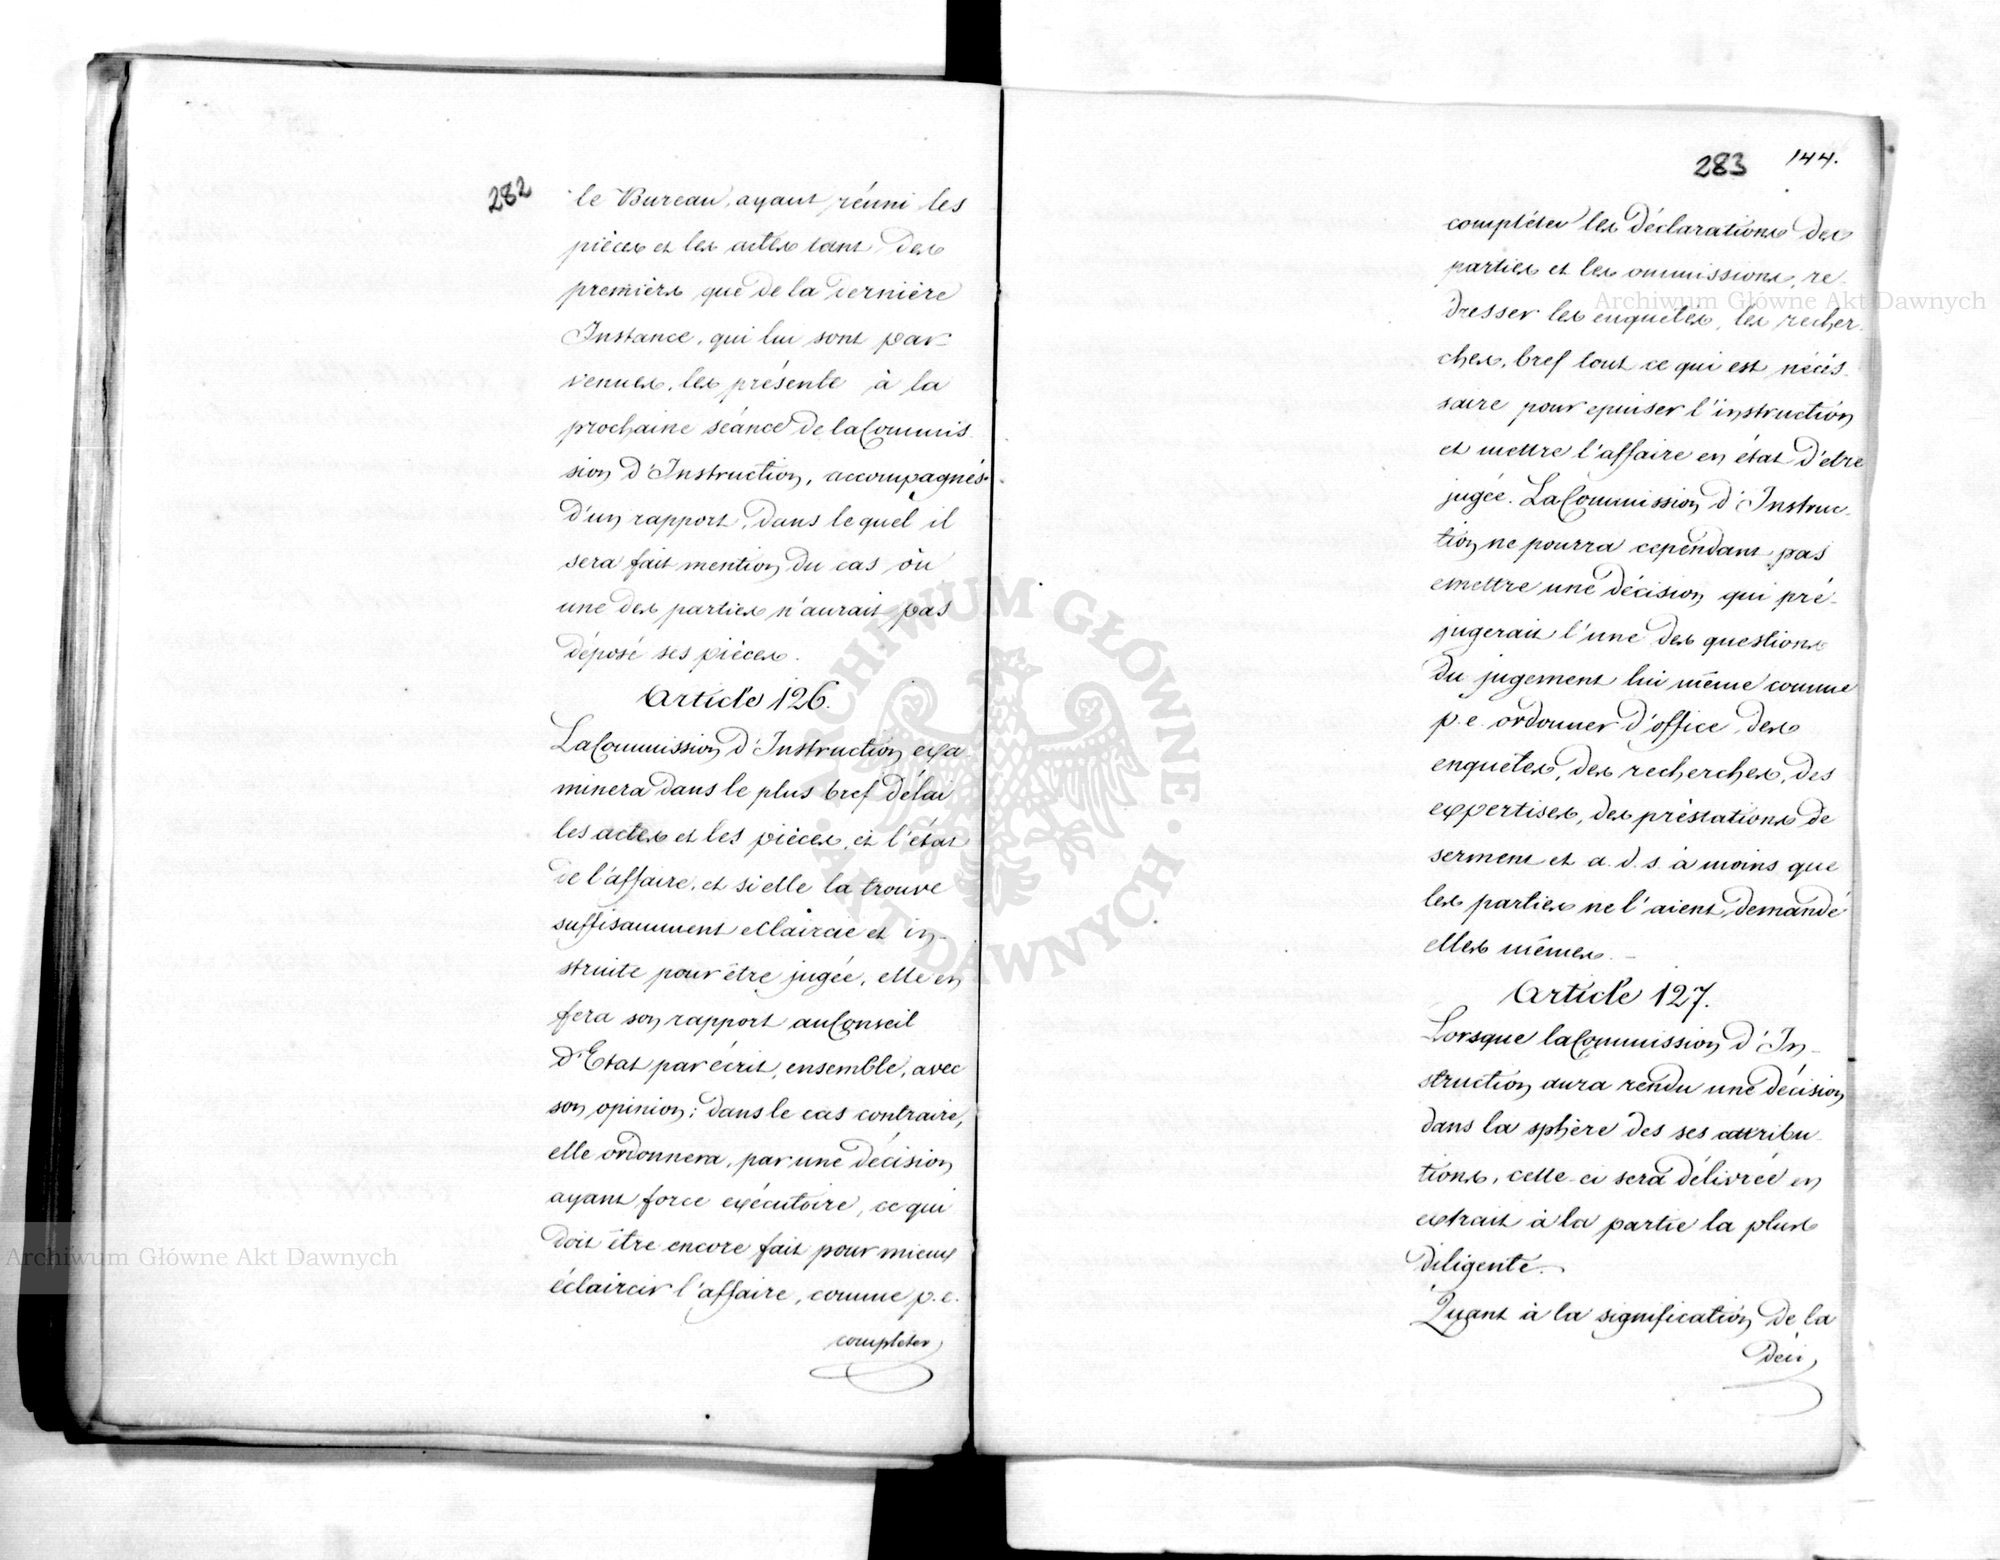 282
le Bureau, ayant réuni les
pièces et les actes tant des
premiers que de la dernière
Instance, qui lui sont par-
venues, les présente à la
prochaine séance de la Commis
sion d'Instruction, accompagnés
d'un rapport, dans lequel il
sera fait mention du cas où
une des parties n'aurait pas
déposé ses pièces.
Article 126.
La Commission d'Instruction exa
minera dans le plus bref délai
les actes et les pièces, et l'état
de l'affaire, et si elle la trouve
suffisamment eclaircie et in-
struite pour être jugée, elle en
fera son rapport au Conseil
d'Etat par écrit, ensemble, avec
son opinion; dans le cas contraire,
elle ordonnera, par une décision
ayant force exécutoire, ce qui
doit être encore fait pour mieux
éclaircir l'affaire, comme p.e.
completer
283 144.
compléter les déclarations des
parties et les ommissions, re-
dresser les enquêtes, les recher-
ches, bref tout ce qui est nécés-
saire pour epuiser l'instruction
et mettre l'affaire en état d'etre
jugée. La Commission d'Instruc-
tion ne pourra cependant pas
emettre une décision qui pré-
jugerait l'une des questions
du jugement lui même comme
p.e. ordonner d'office des
enquêtes, des recherches, des
expertises, des préstations de
serment et a.d.s. à moins que
les parties ne l'aient demandé
elles mêmes.-
Article 127.
Lorsque la Commission d'In-
struction aura rendu une décision
dans la sphère des ses attribu-
tions, celle-ci sera délivrée en
extrait à la partie la plus
diligente.-
Quant à la signification de la
déci
Archiwum Główne Akt Dawnych
Archiwum Główne Akt Dawnych
ARCHIWUM GŁÓWNE
AKT DAWNYCH